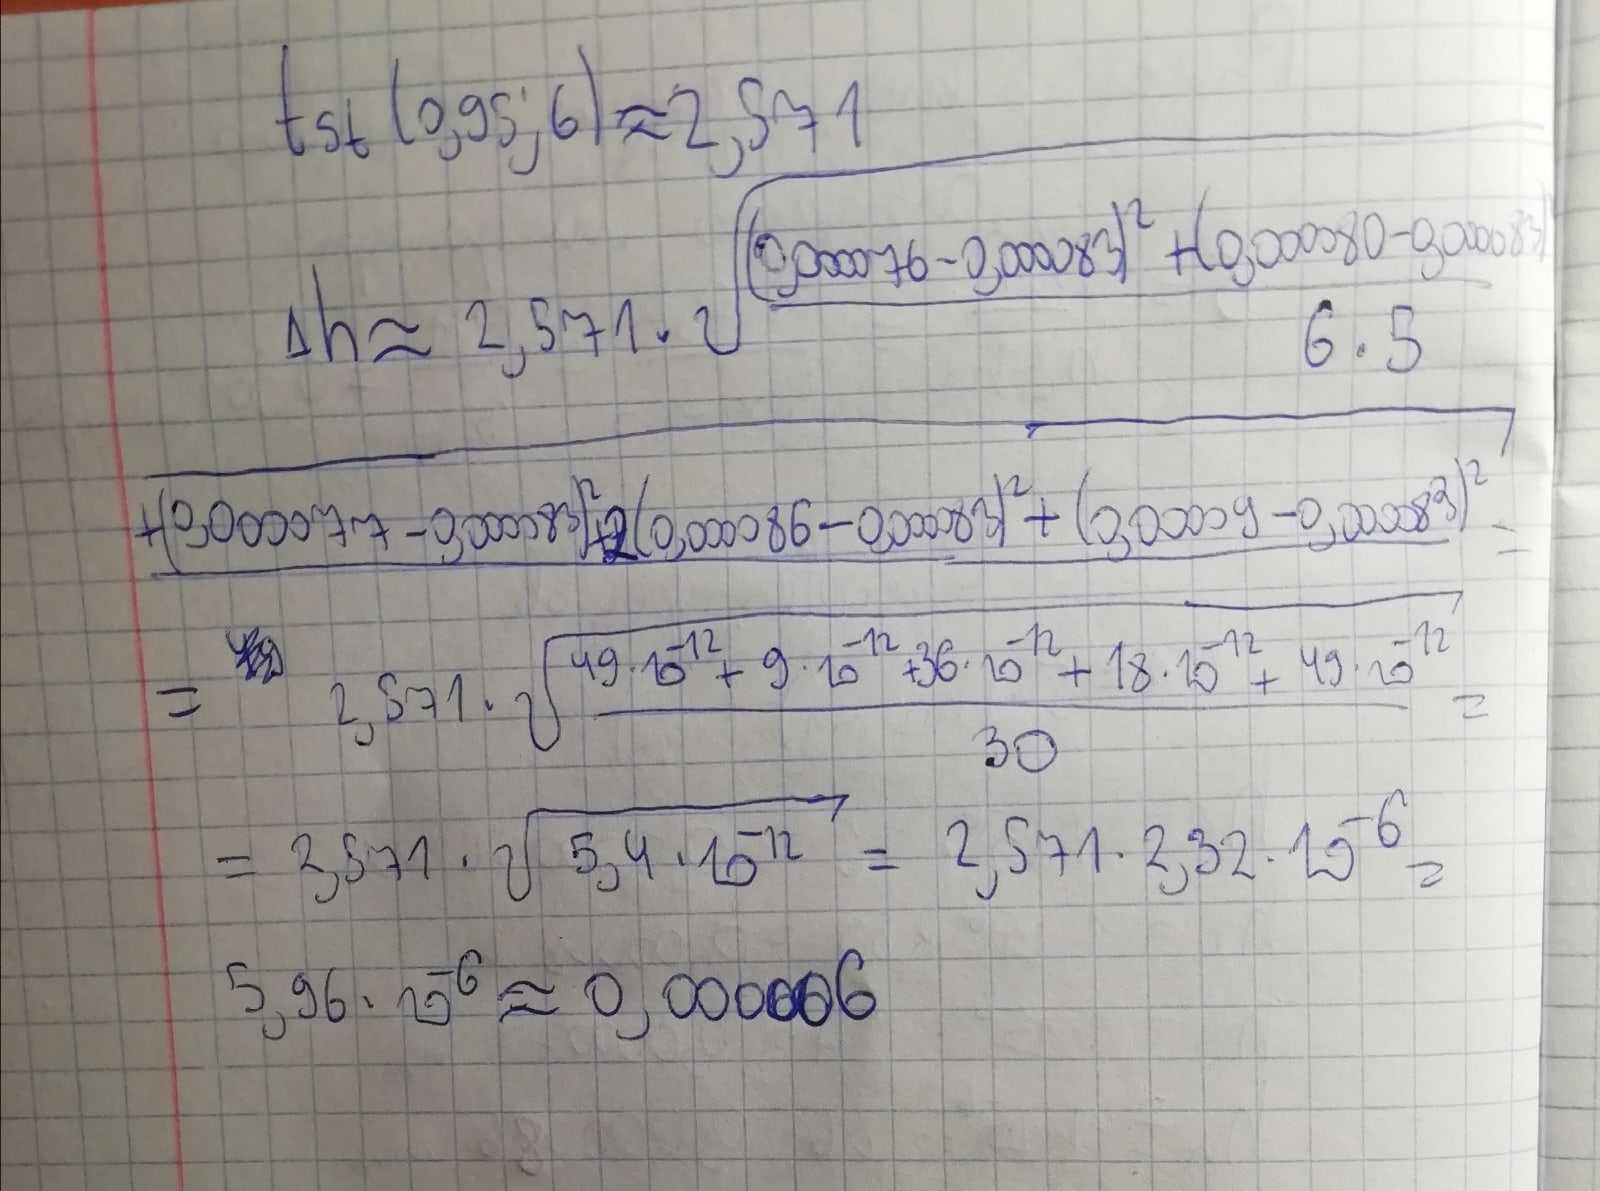 tst(0,95; 6) ≈ 2,571
Δh ≈ 2,571 · √((0,000076 - 0,000083)² + (0,000080 - 0,000083)
6 · 5
+(0,000077 - 0,000083)² + 2(0,000086 - 0,000083)² + (0,00009 - 0,000083)² =
= 2,571 · √(49 · 10⁻¹² + 9 · 10⁻¹² + 36 · 10⁻¹² + 18 · 10⁻¹² + 49 · 10⁻¹² =
30
= 2,571 · √5,4 · 10⁻¹² = 2,571 · 2,32 · 10⁻⁶ =
5,96 · 10⁻⁶ ≈ 0,000006